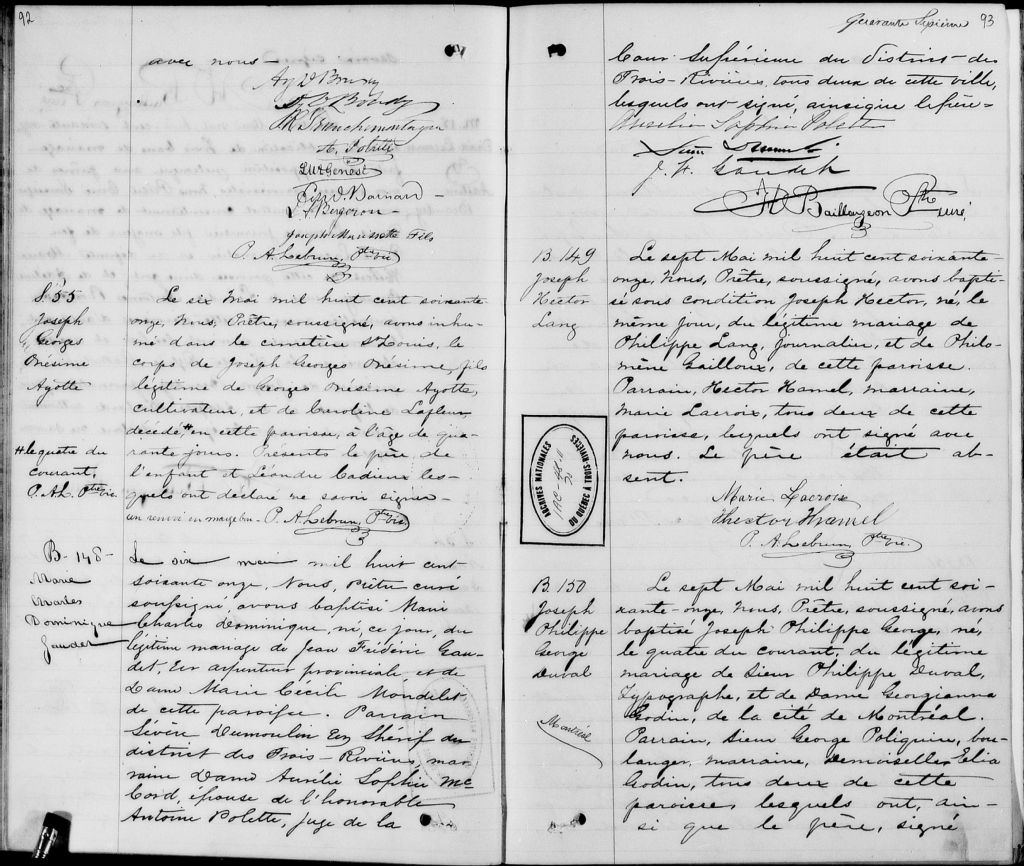 92
avec nous-
L. U. A. Genest
L. Bergeron
Joseph Morissette Fils
P. A. Lebrun, Ptre vic.
S 55
Joseph
Georges
Onésime
Ayotte
# le quatre du
courant,
P. A. L. Ptre vic.
Le six Mai mil huit cent soixante
onze, Nous, Prêtre, soussigné, avons inhu-
mé dans le cimetière St Louis, le
corps de Joseph Georges Onésime, fils
légitime de Georges Onésime Ayotte,
cultivateur, et de Caroline Lafleur,
décédé # en cette paroisse, à l'âge de qua-
rante jours. Présents le père de
l'enfant et Léandre Cadieux les-
quels ont déclaré ne savoir signer-
un renvoi en marge bon. P. A. Lebrun, Ptre vic.
B- 148-
Marie
Charles
Dominique
Gaudet
Le six mai mil huit cent
soixante onze, Nous, Prêtre curé
soussigné, avons baptisé Marie
Charles Dominique, né, ce jour, du
légitime mariage de Jean Frédéric Gau-
det, Ecr arpenteur provinciale, et de
Dame Marie Cécile Mondelet
de cette paroisse. Parrain
Sévère Dumoulin Ecr Shérif du
district des Trois-Rivières, mar
raine Dame Aurélie Sophie Mc
Cord, épouse de l'honorable
Antoine Polette, juge de la
Quarante Septième 93
Cour Supérieure du District des
Trois-Rivières, tous deux de cette ville,
lesquels ont signé, ainsi que le père-
Aurélie Sophie Polette
Sévère Dumoulin
J. F. Gaudet
Baillargeon Ptre
Curé
B. 149
Joseph
Hector
Lang
Le sept Mai mil huit cent soixante-
onze, Nous, Prêtre, soussigné, avons bapti-
sé sous condition Joseph Hector, né, le
même jour, du légitime mariage de
Philippe Lang, Journalier, et de Philo-
mène Gailloux, de cette paroisse.
Parrain, Hector Hamel, marraine,
Marie Lacroix, tous deux de cette
paroisse, lesquels ont signé avec
nous. Le père était ab-
sent.
Marie Lacroix
Hector Hamel
P. A. Lebrun, Ptre vic.
ARCHIVES NATIONALES
DU QUÉBEC À TROIS-RIVIÈRES
B. 150
Joseph
Philippe
George
Duval
Montréal
Le sept Mai mil huit cent soi-
xante-onze, Nous, Prêtre, soussigné, avons
baptisé Joseph Philippe George, né,
le quatre du courant, du légitime
mariage de Sieur Philippe Duval,
Typographe, et de Dame Georgianna
Godin, de la cité de Montréal.
Parrain, Sieur George Poliquin, bou-
langer, marraine, Demoiselle Elia
Godin, tous deux de cette
paroisse, lesquels ont, ain-
si que le père, signé